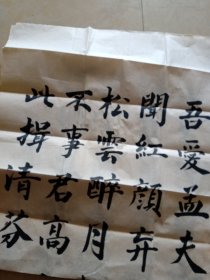 吾愛孟夫
聞紅顏弃
松雲醉月
不事君高
此揖清芬